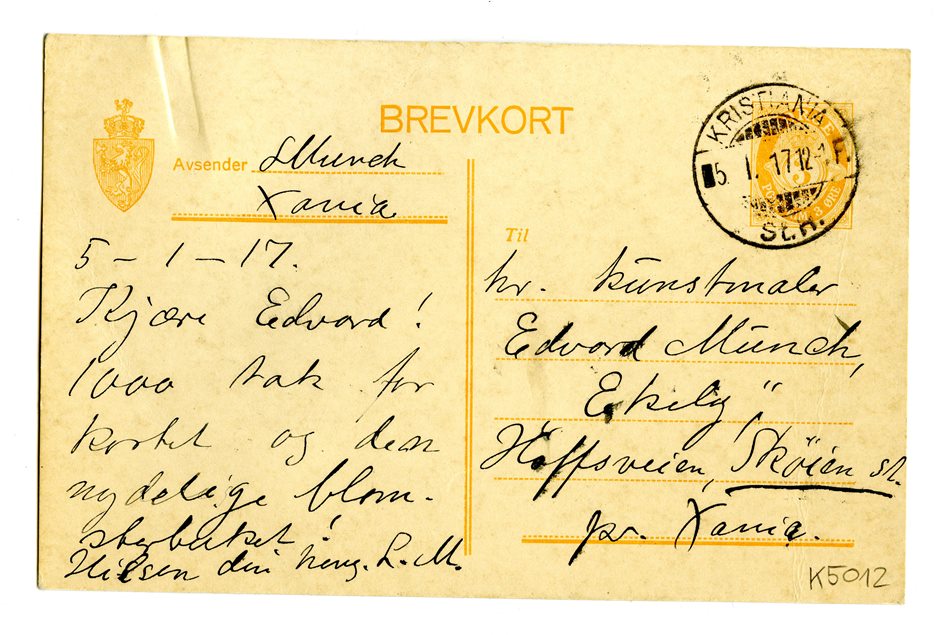 BREVKORT
Avsender LMunch
Xania
5 - 1 - 17.
Kjære Edvard!
1000 tak for
kortet og den
nydelige blom-
sterbuket!
Hilsen din heng. L. M.
Til
hr. kunstmaler
Edvard Munch,
Ekely"
Hoffsveien, Skøien st.
pr. Xania.
KRISTIANIA F.
5. I. 17 12-1
St.H.
3 ØRE
K5012